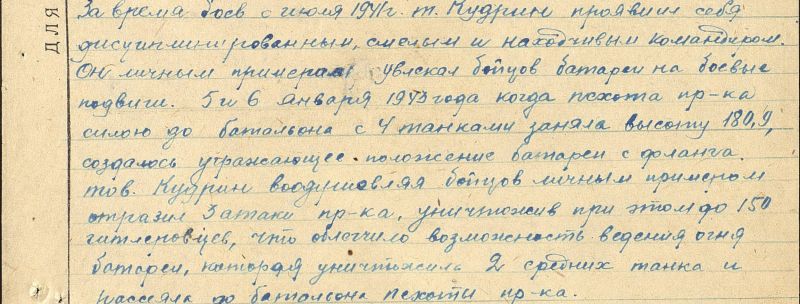 ДЛЯ
За время боев с июля 1941г. т. Кудрин проявил себя
дисциплинированным, смелым и находчивым командиром.
Он личным примером увлекал бойцов батареи на боевые
подвиги. 5 и 6 января 1943 года когда пехота пр-ка
силою до батальона с 4 танками заняла высоту 180,9,
создалось угражающее положение батареи с фланга.
тов. Кудрин воодушевляя бойцов личным примером
отразил 3 атаки пр-ка, уничтожив при этом до 150
гитлеровцев, что облегчило возможность ведения огня
батареи, которая уничтожила 2 средних танка и
рассеяла до батальона пехоты пр-ка.